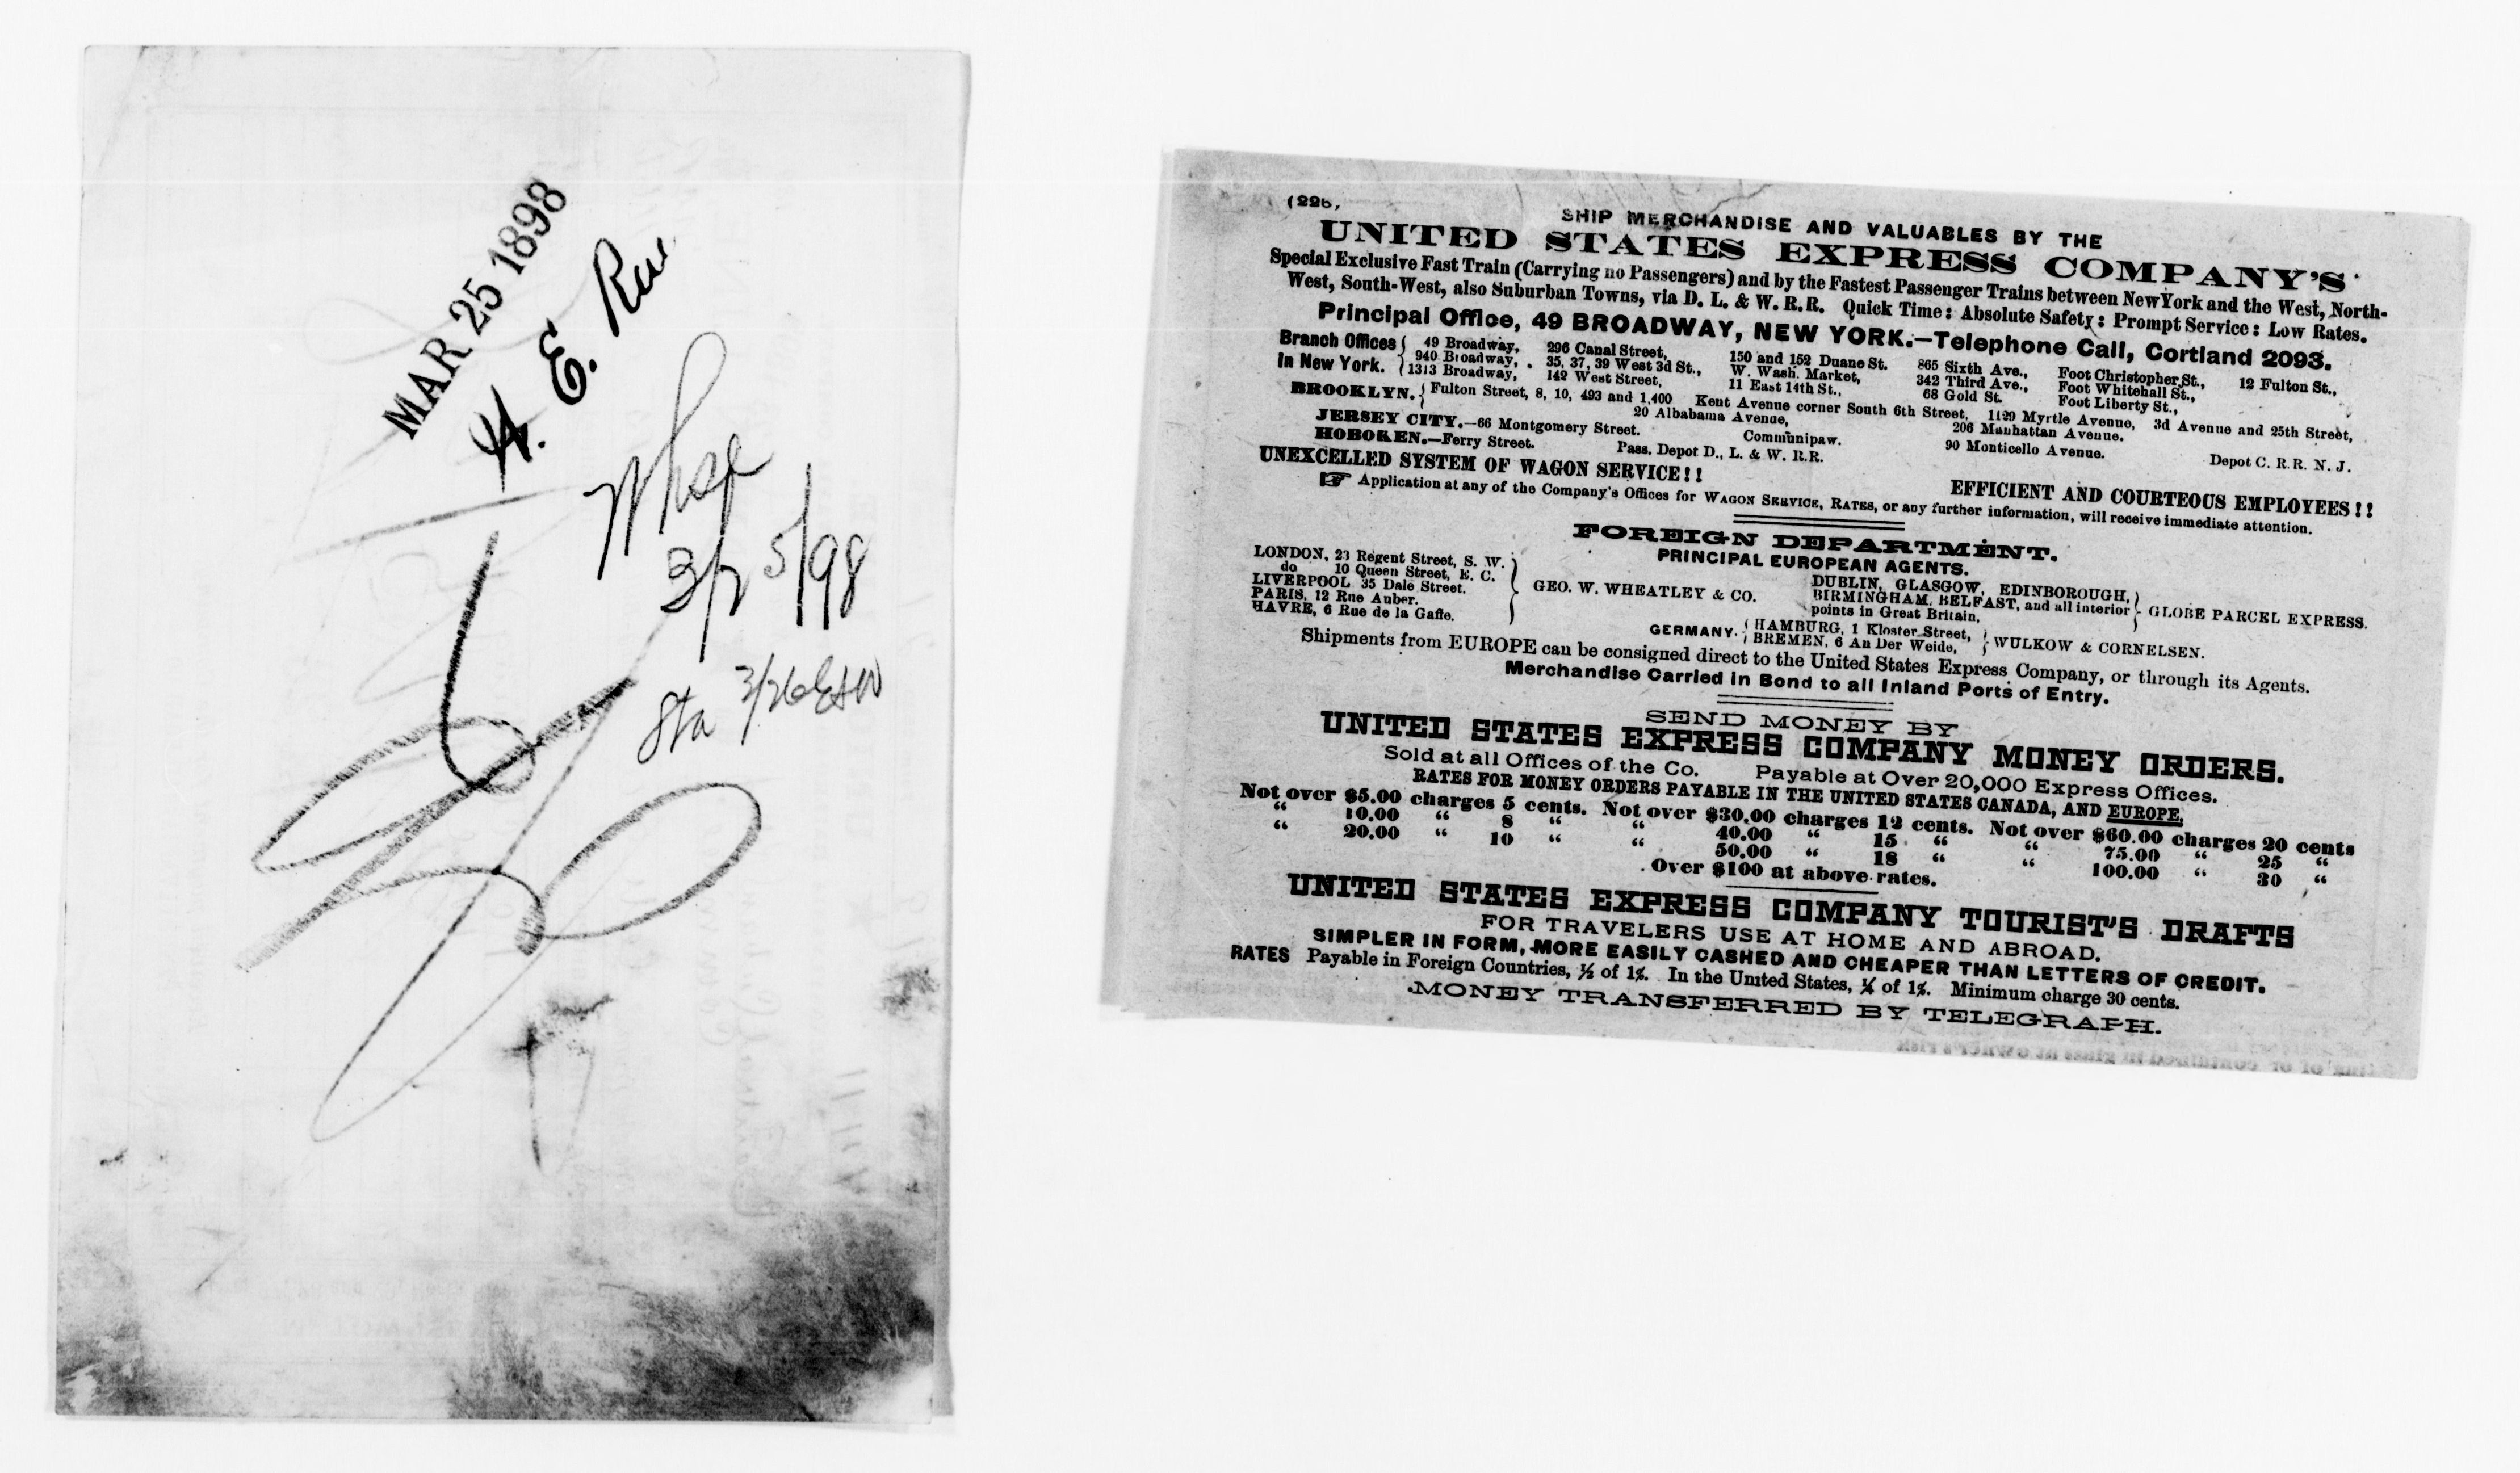 MAR. 25 1898
H. E. Ru
Whse
3/25/98
Sta 3/26
(226,
SHIP MERCHANDISE AND VALUABLES BY THE
UNITED STATES EXPRESS COMPANY'S
Special Exclusive Fast Train (Carrying no Passengers) and by the Fastest Passenger Trains between NewYork and the West, North-
West, South-West, also Suburban Towns, via D. L. & W. R.R. Quick Time: Absolute Safety: Prompt Service: Low Rates.
Principal Office, 49 BROADWAY, NEW YORK.—Telephone Call, Cortland 2093.
Branch Offices { 49 Broadway, 296 Canal Street, 150 and 152 Duane St. 865 Sixth Ave., Foot Christopher St., 12 Fulton St.,
In New York. { 940 Broadway, 35, 37, 39 West 3d St., W. Wash. Market, 342 Third Ave., Foot Whitehall St.,
1313 Broadway, 142 West Street, 11 East 14th St., 68 Gold St. Foot Liberty St.,
BROOKLYN. { Fulton Street, 8, 10, 493 and 1,400 Kent Avenue corner South 6th Street, 1129 Myrtle Avenue, 3d Avenue and 25th Street,
20 Albabama Avenue, 206 Manhattan Avenue.
JERSEY CITY.—66 Montgomery Street. Communipaw. 90 Monticello Avenue. Depot C. R.R. N. J.
HOBOKEN.—Ferry Street. Pass. Depot D., L. & W. R.R.
UNEXCELLED SYSTEM OF WAGON SERVICE!! EFFICIENT AND COURTEOUS EMPLOYEES!!
☞ Application at any of the Company's Offices for WAGON SERVICE, RATES, or any further information, will receive immediate attention.
FOREIGN DEPARTMENT.
PRINCIPAL EUROPEAN AGENTS.
LONDON, 23 Regent Street, S. W.
do 10 Queen Street, E. C.
LIVERPOOL 35 Dale Street.
PARIS, 12 Rne Auber.
HAVRE, 6 Rue de la Gaffe.
} GEO. W. WHEATLEY & CO.
DUBLIN, GLASGOW, EDINBOROUGH,
BIRMINGHAM, BELFAST, and all interior
points in Great Britain,
} GLOBE PARCEL EXPRESS.
GERMANY. { HAMBURG, 1 Kloster Street,
BREMEN, 6 An Der Weide,
} WULKOW & CORNELSEN.
Shipments from EUROPE can be consigned direct to the United States Express Company, or through its Agents.
Merchandise Carried in Bond to all Inland Ports of Entry.
SEND MONEY BY
UNITED STATES EXPRESS COMPANY MONEY ORDERS.
Sold at all Offices of the Co. Payable at Over 20,000 Express Offices.
RATES FOR MONEY ORDERS PAYABLE IN THE UNITED STATES CANADA, AND EUROPE,
Not over $5.00 charges 5 cents. Not over $30.00 charges 12 cents. Not over $60.00 charges 20 cents
“ 10.00 “ 8 “ “ 40.00 “ 15 “ “ 75.00 “ 25 “
“ 20.00 “ 10 “ “ 50.00 “ 18 “ “ 100.00 “ 30 “
Over $100 at above rates.
UNITED STATES EXPRESS COMPANY TOURIST'S DRAFTS
FOR TRAVELERS USE AT HOME AND ABROAD.
SIMPLER IN FORM, MORE EASILY CASHED AND CHEAPER THAN LETTERS OF CREDIT.
RATES Payable in Foreign Countries, ½ of 1%. In the United States, ¼ of 1%. Minimum charge 30 cents.
MONEY TRANSFERRED BY TELEGRAPH.